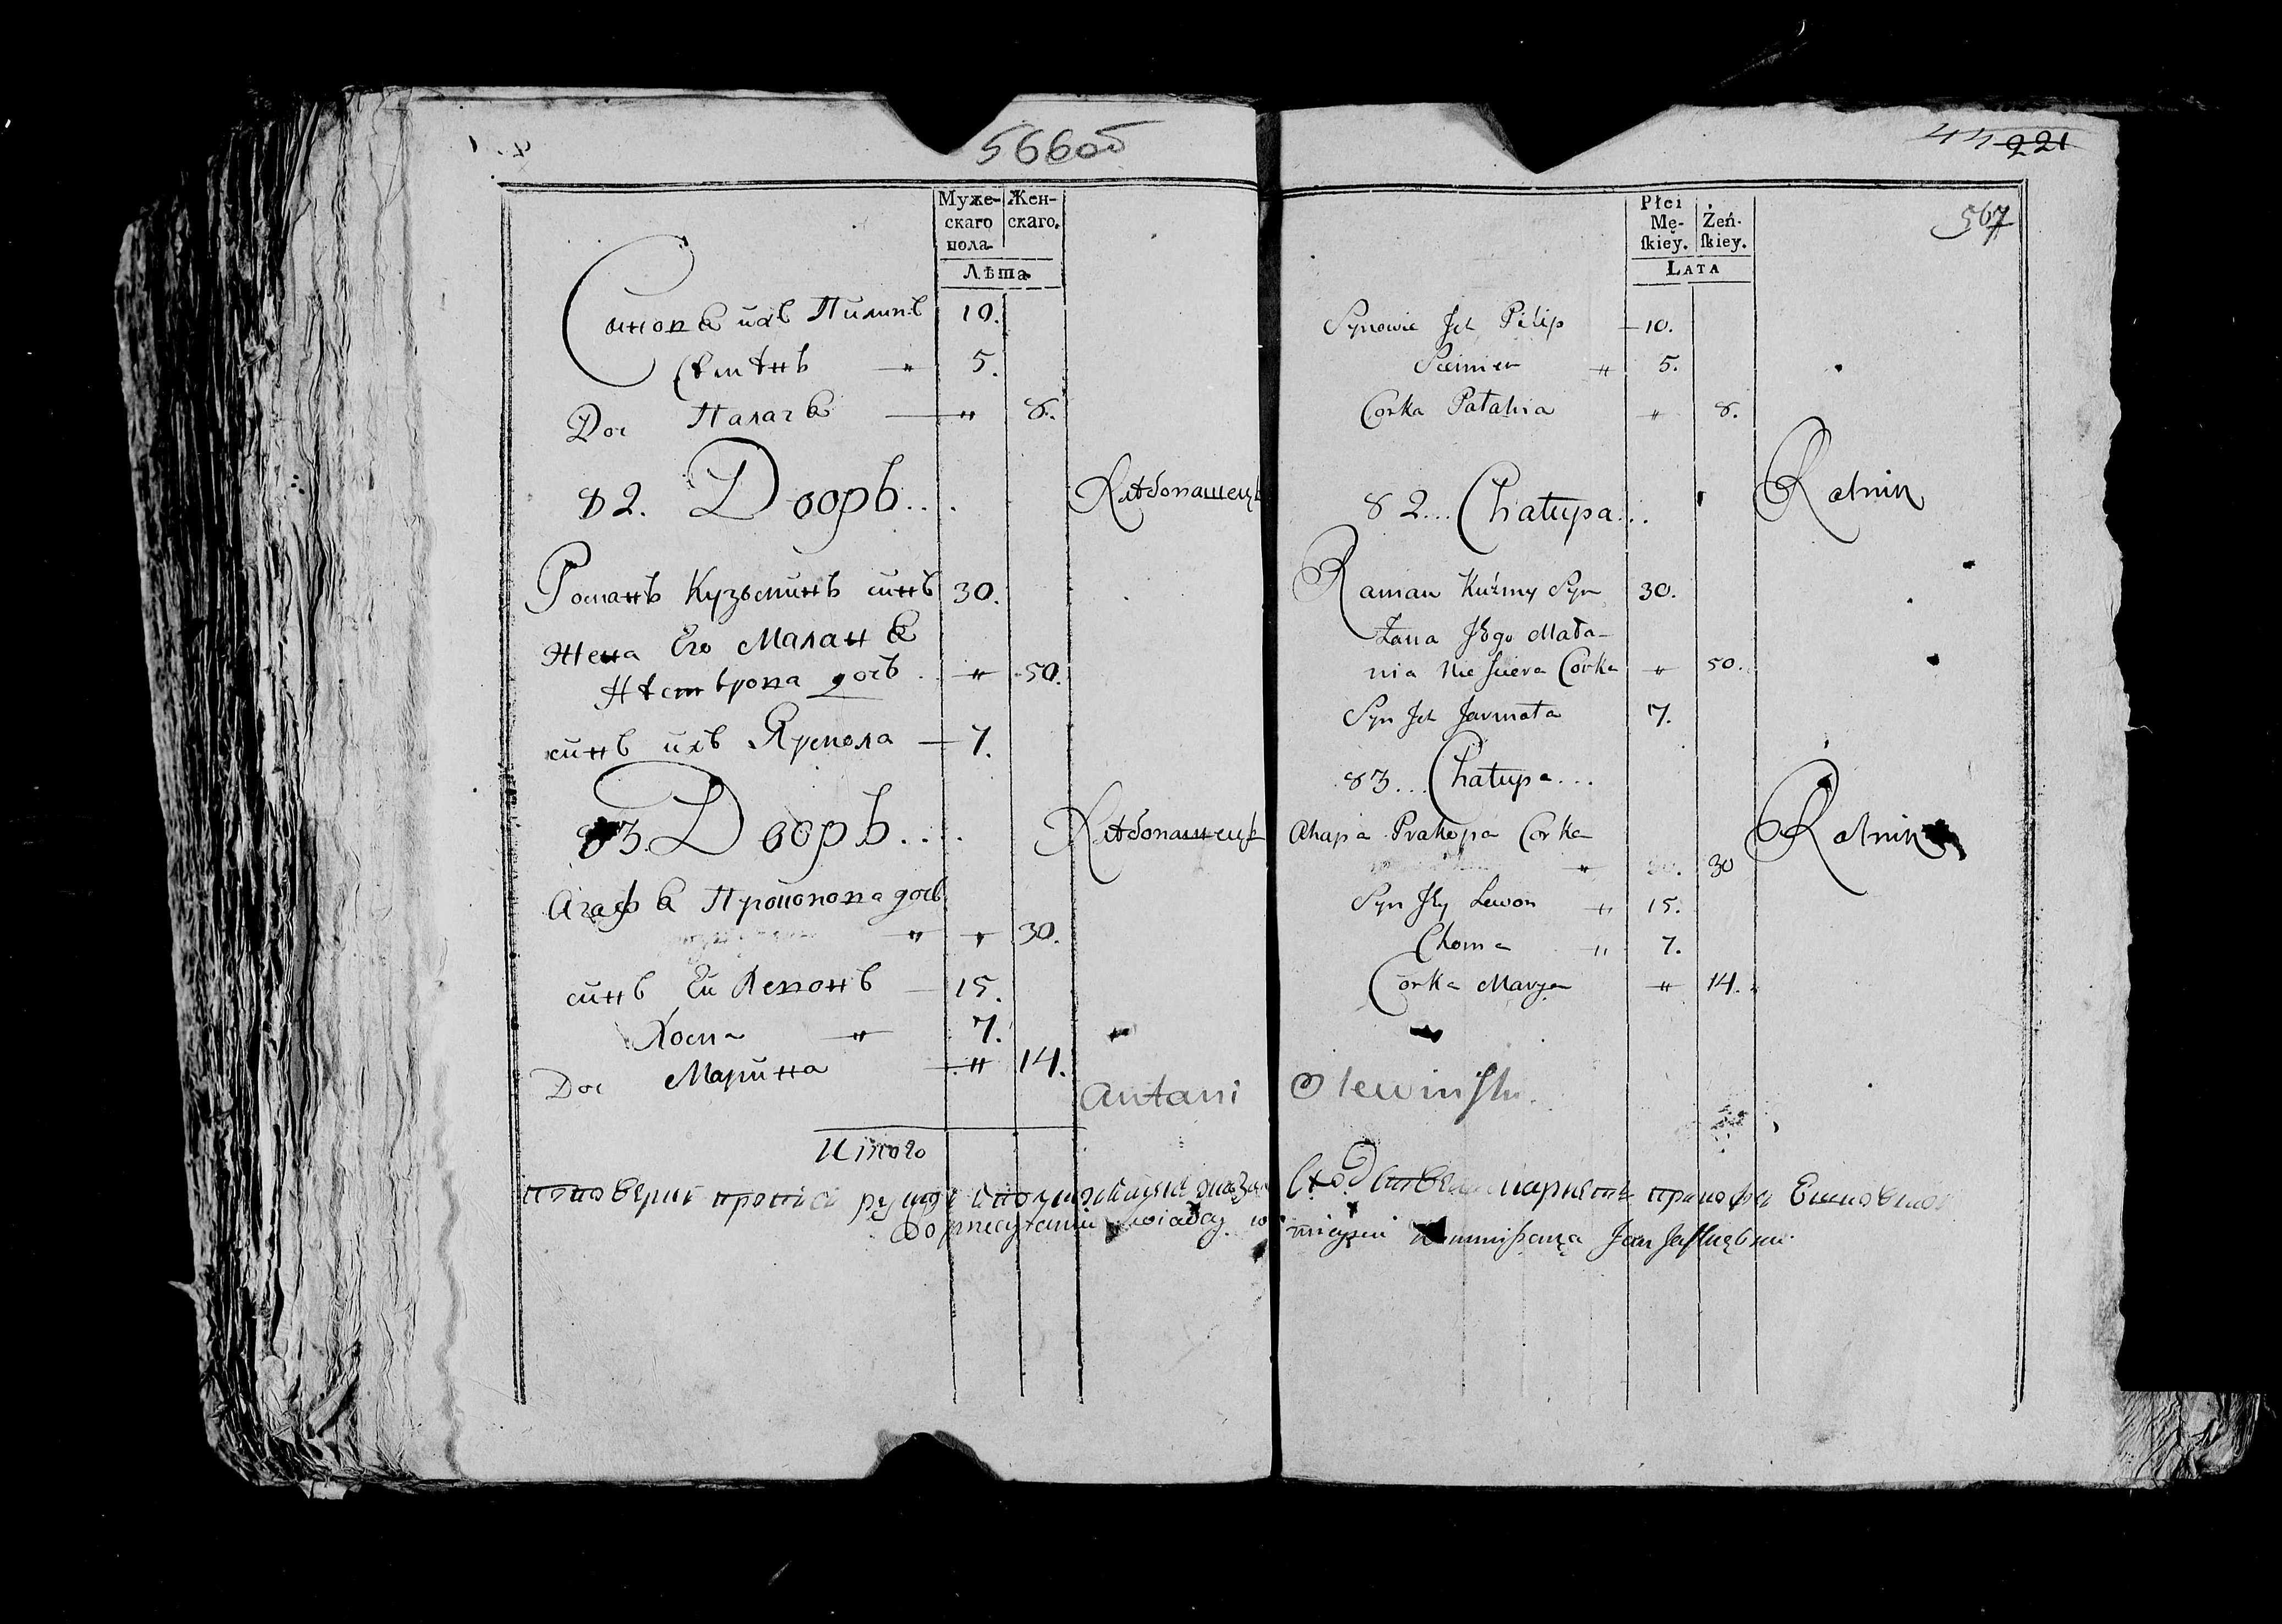 566об
Муже- Жен-
скаго скаго.
пола
Лѣта
Синовѣ ихъ Пилипъ 10.
Сѣмѣнъ " 5.
Доч Палагѣ " 8.
82. Дворъ.... Хлѣбопашецъ
Романъ Кузьминъ синъ 30.
Жена Его Маланѣ
Нѣстѣрова дочъ " 50.
синъ ихъ Ярмола 7.
83. Дворъ.... Хлѣбопашецъ
Агафѣ Прокопова дочъ
" " 30.
синъ Ей Левонъ 15.
Хома " 7.
Доч Марина " 14.
Antoni
Итого
44 221
567
Płci
Mę- Żeń-
ſkiey. ſkiey.
LATA
Synowie Jch Pilip 10.
Siemien " 5.
Corka Pałahia " 8.
82... Chałupa... Rolnik
Raman Kuźmy Syn 30.
Żona Jego Mała-
nia Niesciera Corka " 50.
Syn Jch Jarmoła 7.
83... Chałupa... Rolnik
Ahapa Prakopa Corka
" 30
Syn Jey Lewon " 15.
Choma " 7.
Corka Marya " 14.
Olewinſki.